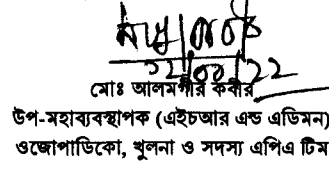 ১২
মোঃ আলমগীর কবীর
উপ-মহাব্যবস্থাপক (এইচআর এন্ড এডিমন)
ওজোপাডিকো, খুলনা ও সদস্য এপিএ টিম